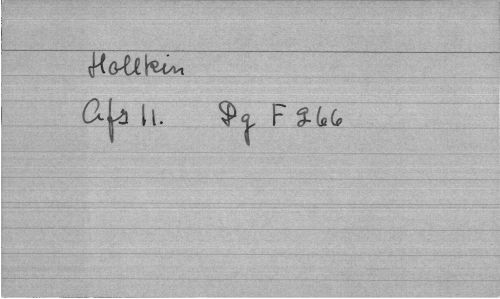 Hollkin
Afs 11. Pg F 266